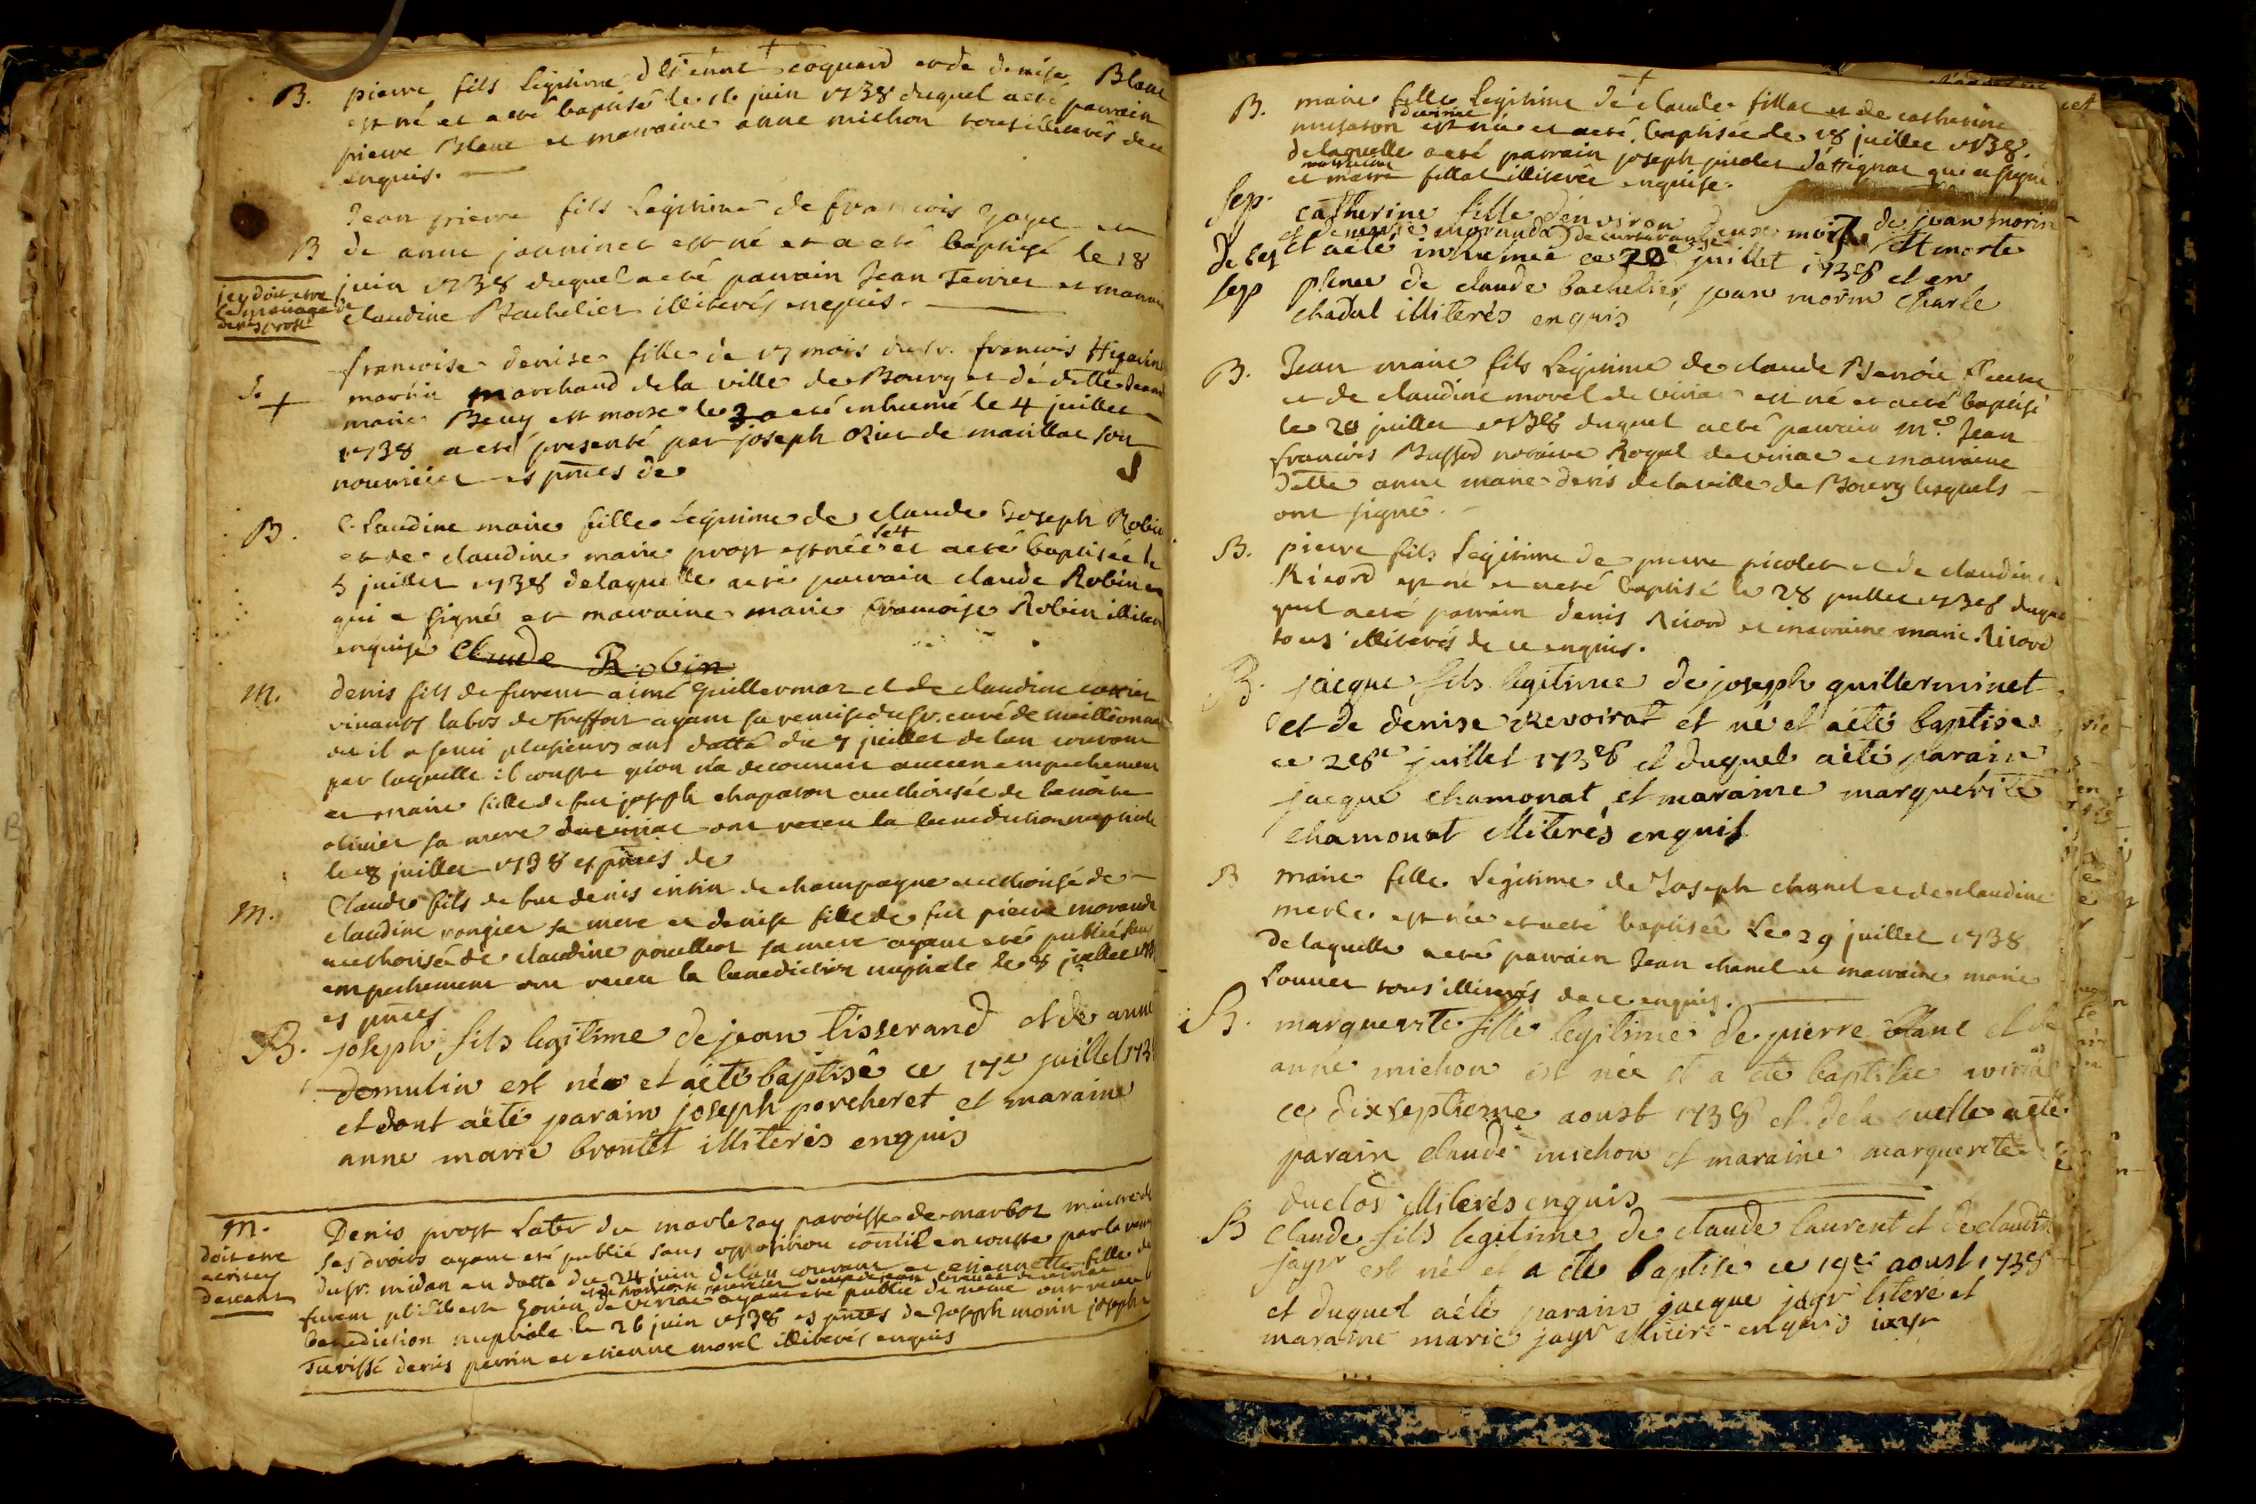 B. pierre fils Legitime d'Etienne coquard et de denise Blanc
est né et a eté baptisé le 16 juin 1738 duquel a eté parrain
pierre Blanc et marraine anne michon tous illiterés de ce
enquis.
Jean pierre fils Legitime de francois Joyer et
B de anne jeaninet est né et a eté baptisé le 18
juin 1738 duquel a eté parrain Jean Ferrier et marraine
claudine Bachelier illiterés enquis.
icy doit etre
le mariage de
denis prost
francoise denise fille de 17 mois du Sr. francois
S. + marchand de la ville de Bourg et de dlle Jeanne
marie est morte le 3 a eté inhumé le 4 juillet
1738 a eté presenté par joseph de marillat son
nourricier es pnces de
B. Claudine marie fille Legitime de claude Joseph Robin
et de claudine marie prost est née le 4 et a eté baptisée le
5 juillet 1738 de laquelle a eté parrain claude Robin
qui a signé et marraine marie francoise Robin illiteré
enquise Claude Robin
m. denis fils de furent aimé guillermoz et de claudine
vivants labrs de Treffort ayant sa remise du Sr. curé de meillonnas
ou il a servi plusieurs ans datté du 7 juillet de l'an courant
par laquelle il conste qu'on n'a decouvert aucun empechement
et marie fille de feu joseph chapaton authorisée de benoite
olivier sa mere de viriat ont receu la benediction nuptiale
le 8 juillet 1738 es pnces de
m. Claude fils de feu denis de champagne authorisé de
claudine rongier sa mere et denise fille de feu pierre morand
authorisée de claudine sa mere ayant eté publié sans
empechement ont receu la benediction nuptiale le 8 juillet 1738
es pnces
B. joseph fils legitime de jean tisserand et de anne
demulin est née et a été baptisé ce 17e juillet 1738
et dont a été parain joseph porcheret et maraine
anne marie brontet illiterés enquis
m. Denis prost Labr du parroisse de marboz maitre de
doit etre ses droits ayant eté publié sans opposition comme il en conste par la remise
ecrit cy du Sr. midan en datte du 24 juin de l'an courant et etiennette fille de
devant furent philibert Gonin de viriat ayant eté publié de meme ont receu
benediction nuptiale le 26 juin 1738 es pnces de Joseph morin joseph
denis perrin et etienne morel illiterés enquis
B. marie fille Legitime de claude fillat et de catherine
est née et a eté baptisée le 18 juillet 1738.
de laquelle a eté parrain joseph d'attignat qui a signé
et marraine marie fillat illiterée enquise.
Sep. catherine fille d'environ deux mois de jean morin
et de denise morand de est morte
de sep et a eté inhumée ce 20e juillet 1738 et en
sep pnce de claude bachelier, jean morin Charle
chadal illiterés enquis
B. Jean marie fils Legitime de claude Benoit
et de claudine morel de viriat est né et a eté baptisé
le 28 juillet 1738 duquel a eté parrain Me. Jean
francois Buffod notaire Royal de viriat et marraine
Dlle anne marie denis de la ville de Bourg lesquels
ont signé.
B. pierre fils Legitime de pierre picolet et de claudine
Ricord est né et a eté baptisé le 28 juillet 1738 duquel
quel a eté parrain denis Ricord et marraine marie Ricord
tous illiterés de ce enquis.
B. jacque fils legitime de joseph guilleminet
et de denise revoirat et né et a été baptise
ce 28e juillet 1738 et duquel a été parain
jacque chamonat et maraine marguerite
chamonat illiterés enquis
B marie fille Legitime de Joseph chanel et de claudine
merle est née et a eté baptisée Le 29 juillet 1738
de laquelle a eté parrain Jean chanel et marraine marie
Louvet tous illiterés de ce enquis.
B. marguerite fille legitime de pierre blanc et de
anne michon est née et a été baptisée
ce dixseptieme aoust 1738 et de la quelle a été
parain claude michon et maraine marguerite
duclos illiterés enquis
B Claude fils legitime de claude laurent et de claudine
jayr est né et a été baptisé ce 19e aoust 1738
et duquel a été parain jacque jayr literé et
maraine marie jayr illiteré enquis jayr